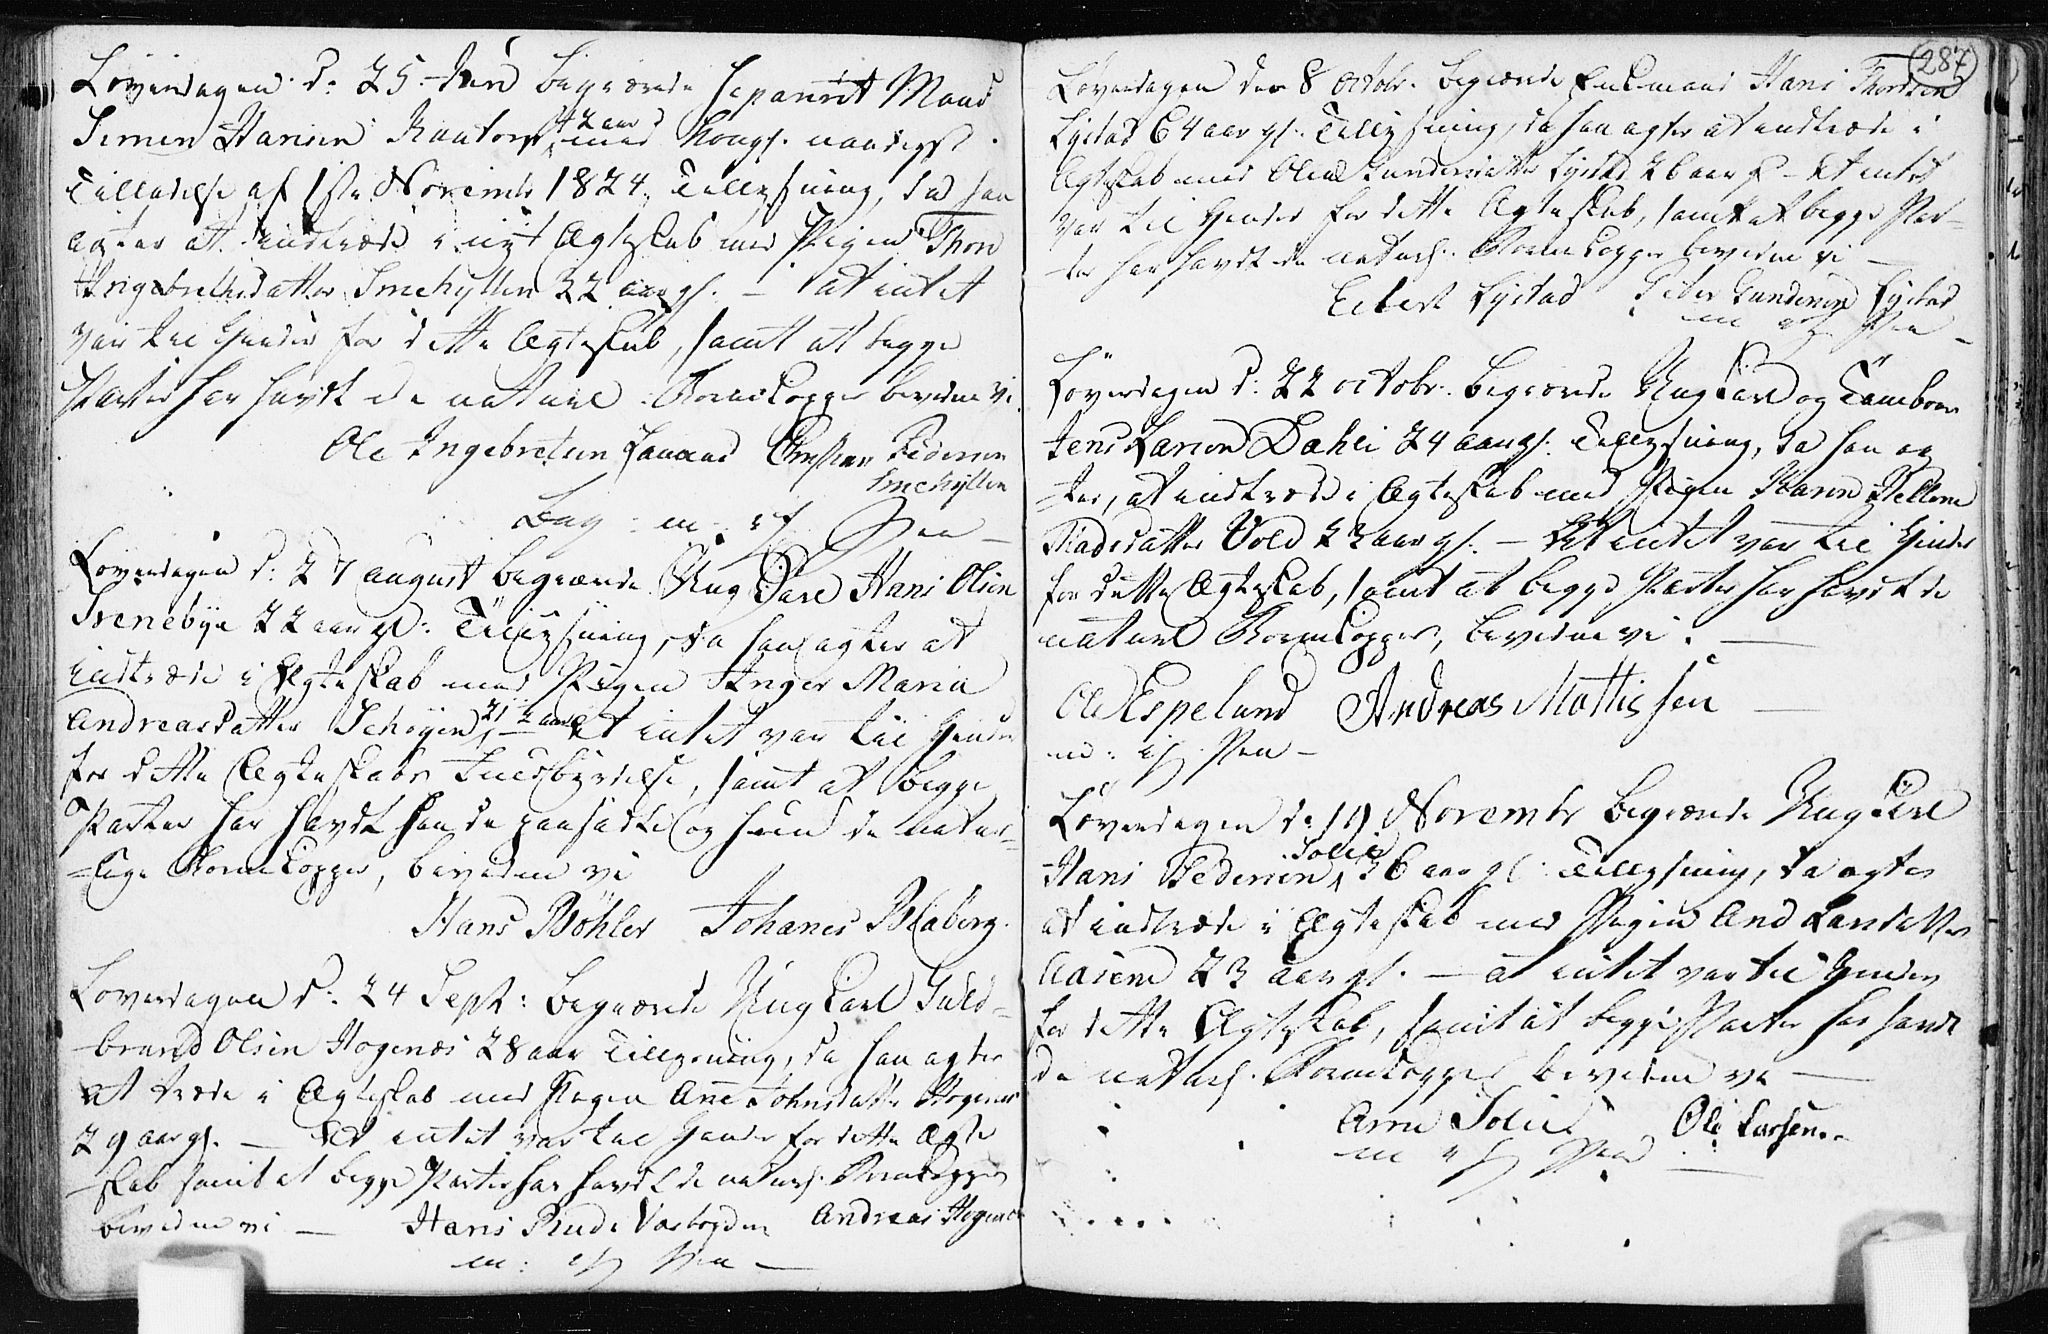 Løverdagen d: 25 Jun begærede separeret Mand
Simen Hansen Kantorp 42 aar med Kongl. naadigst
Tilladelse af 1ste Novembr 1824 Tillysning, da han
agter at indtræde i nyt Ægteskab med Pigen Thore
Ingebrethsdatter Smehytten 32 aar gl. – at intet
var til Hinder for dette Ægteskab, samt at begge
Parter har havdt de naturl. Børnekopper bevidne vi
Ole Ingebretsen Christian Pedersen
Smehytten
m: i f Pen
Løverdagen d: 27 august begærede Ung Karl Hans Olsen
Svenebye 22 aar gl: Tillysning, da han agter at
indtræde i Ægteskab med Pigen Inger Maria
Andreasdatter Schøyen, at intet var til Hinder
for dette Ægteskabs Fuldbyrdelse, samt at begge
Parter har havdt han de paasadte og hun de natur-
-lige Børnekopper, bevidne vi
Hans Bøhler Johanes Blaberg.
Løverdagen d: 24 Sept: begærede Ung Karl Guld-
-brand Olsen Hogenæs 28 aar Tillysning, da han agter
at træde i Ægteskab med Pigen Ane Johnsdatter Hogenæs
29 aar gl. – at intet var til Hinder for dette Ægte
-skab samt at begge Parter har havdt de naturl. Børnekopper
bevidne vi – Hans Rud Andreas Hogenæs
m: i f Pen –
287
Løverdagen den 8 octobr. begærede Enkemand Hans Thordsen
Lystad 64 aar gl. Tillysning, da han agter at indtræde i
Ægteskab med Olea Gundersdatter Lystad 26 aar gl – at intet
var til Hinder for dette Ægteskab, samt at begge Par-
-ter har havdt de naturl. Børnekopper bevidne vi –
Eilert Lystad Peder Gundersen Lystad
m i f Pen –
Løverdagen d: 22 octobr. begærede Ung Karl og Tambour
Jens Larsen Dahli 24 aar gl. Tillysning, da han ag
-ter, at indtræde i Ægteskab med Pigen Karen Pellene
Madsdatter Vold 23 aar gl. – at intet var til Hinder
for dette Ægteskab, samt at begge Parter har havdt de
naturl Børnekopper, bevidne vi. –
Ole Espelund Andreas Mattissen –
m: i f Pen –
Løverdagen d: 19 Novembr begærede Ung Karl
Hans Pedersen Solie 36 aar gl: Tillysning, da agter
at indtræde i Ægteskab med Pigen And Larsdatter
Aasem 23 aar gl. – at intet var til Hinder
for dette Ægteskab, samt at begge Parter har havdt
de naturl. Børnekopper bevidne vi –
Arne Solie Ole Larsen.
m i f Pen –